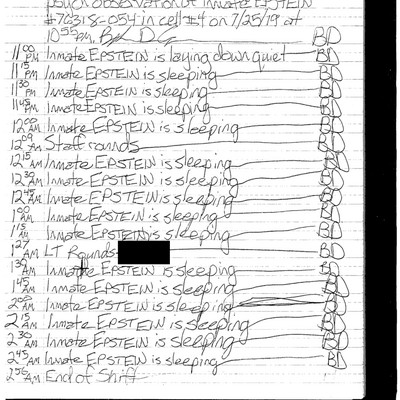 psych observation of Inmate EPSTEIN
#76318-054 in cell #4 on 7/25/19 at
10:55PM.
BD
11:00 PM Inmate EPSTEIN is laying down quiet BD
11:15 PM Inmate EPSTEIN is sleeping BD
11:30 PM Inmate EPSTEIN is sleeping BD
11:45 PM Inmate EPSTEIN is sleeping BD
12:00 AM Inmate EPSTEIN is sleeping BD
12:09 AM Staff rounds BD
12:15 AM Inmate EPSTEIN is sleeping BD
12:30 AM Inmate EPSTEIN is sleeping BD
12:45 AM Inmate EPSTEIN is sleeping BD
1:00 AM Inmate EPSTEIN is sleeping BD
1:15 AM Inmate EPSTEIN is sleeping BD
1:27 AM LT Rounds BD
1:30 AM Inmate EPSTEIN is sleeping BD
1:45 AM Inmate EPSTEIN is sleeping BD
2:00 AM Inmate EPSTEIN is sleeping BD
2:15 AM Inmate EPSTEIN is sleeping BD
2:30 AM Inmate EPSTEIN is sleeping BD
2:45 AM Inmate EPSTEIN is sleeping BD
2:56 AM End of Shift